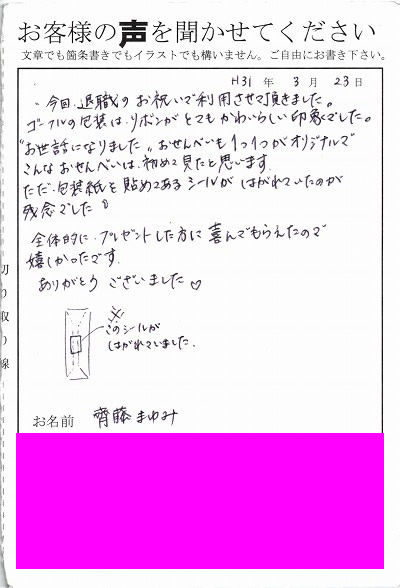 お客様の声を聞かせてください
文章でも箇条書きでもイラストでも構いません。ご自由にお書き下さい。
H31年 3月 23日
今回、退職のお祝いで利用させて頂きました。
ゴーフルの包装は、リボンがとてもかわいらしい印象でした。
"お世話になりました"おせんべいも1つ1つがオリジナルで
こんなおせんべいは、初めて見たと思います。
ただ、包装紙を貼めてあるシールがはがれていたのが
残念でした
全体的に、プレゼントした方に喜んでもらえたので
嬉しかったです。
ありがとうございました♡
このシールが
はがれていました。
切り取り線
お名前 齊藤まゆみ